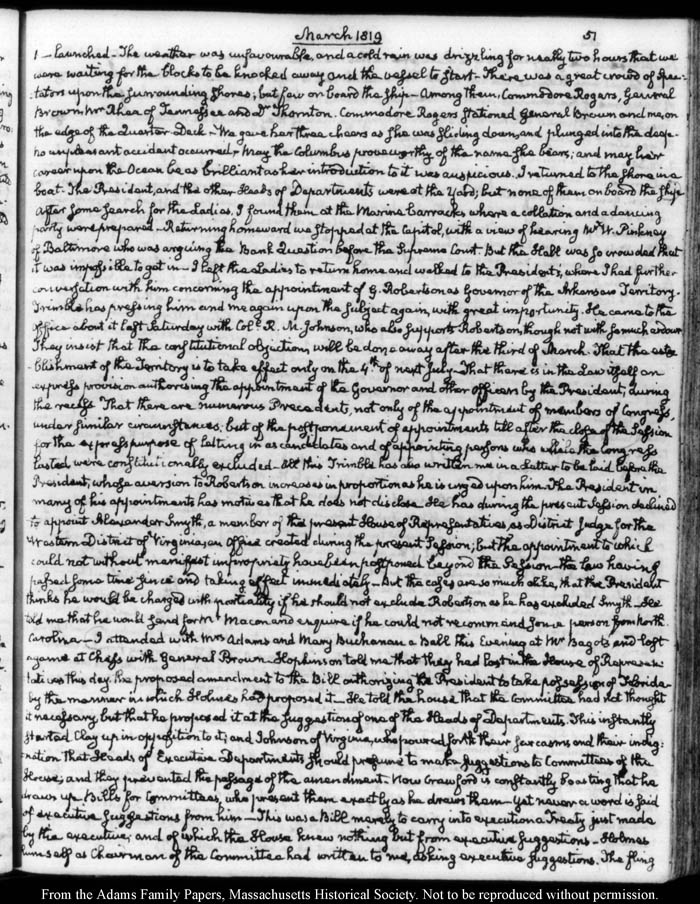 March 1819 51
1 — launched - The weather was unfavourable, and a cold rain was drizzling for nearly two hours that we
were waiting for the blocks to be knocked away and the vessel to start - There was a great crowd of spec-
tators upon the surrounding shores, but few on board the ship - Among them, Commodore Rogers, General
Brown, Mr Rhea of Tennessee and Dr Thornton. Commodore Rogers stationed General Brown and me, on
the edge of the Quarter Deck - We gave her three cheers as she was sliding down, and plunged into the deep -
no unpleasant accident occurred, - May the Columbus prove worthy of the name she bears; and may her
career upon the Ocean be as brilliant as her introduction to it was auspicious. I returned to the shore in a
boat. The President, and the other Heads of Departments were at the Yard; but none of them on board the ship
After some search for the Ladies, I found them at the Marine barracks where a collation and a dancing
party were prepared - Returning homeward we stopped at the Capitol, with a view of hearing Mr W. Pinkney
of Baltimore who was arguing the Bank Question before the Supreme Court. But the Hall was so crowded that
it was impossible to get in - I left the Ladies to return home and walked to the President's, where I had further
conversation with him concerning the appointment of G. Robertson as Governor of the Arkansaw Territory -
Trimble has pressing him and me again upon the subject again, with great importunity. He came to the
office about it last Saturday with Coll. R. M. Johnson, who also supports Robertson, though not with so much ardour
They insist that the constitutional objections will be done away after the third of March. That the esta-
-blishment of the Territory is to take effect only on the 4th of next July - That there is in the Law itself an
express provision authorising the appointment of the Governor and other officers by the President, during
the recess. That there are numerous Precedents, not only of the appointment of members of Congress,
under similar circumstances; but of the postponement of appointments till after the close of the Session
for the express purpose of letting in as candidates and of appointing persons who while the Congress
lasted were constitutionally excluded - All this Trimble has also written me in a Letter to be laid before the
President; whose aversion to Robertson increases in proportion as he is urged upon him. The President in
many of his appointments has motives that he does not disclose. He has during the present Session declined
to appoint Alexander Smyth, a member of the present House of Representatives as District Judge for the
Western District of Virginia, an office created during the present Session; but the appointment to which
could not without manifest impropriety have been postponed beyond the Session - the Law having
passed some time since and taking effect immediately - But the cases are so much alike, that the President
thinks he would be charged with partiality if he should not exclude Robertson as he has excluded Smyth - He
told me that he would send for Mr Macon and enquire if he could not recommend some person from North
Carolina - I attended with Mrs Adams and Mary Buchanan a Ball this Evening at Mr Bagot's and lost
a game at Chess with General Brown - Hopkinson told me that they had lost in the House of Represen-
tatives this day, the proposed amendment to the Bill authorizing the President to take possession of Florida
by the manner in which Holmes had proposed it - He told the house that the Committee had not thought
it necessary, but that he proposed it at the suggestion of one of the Heads of Departments. This instantly
started Clay up in opposition to it; and Johnson of Virginia, who poured forth their sarcasms and their indig-
nation that Heads of Executive Departments should presume to make suggestions to Committees of the
House; and they prevented the passage of the amendment. Now Crawford is constantly boasting that he
draws up Bills for Committees, who present them exactly as he draws them - Yet never a word is said
of executive suggestions from him - This was a Bill merely to carry into execution a Treaty just made
by the executive; and of which the House knew nothing but from executive suggestions - Holmes
himself as Chairman of the Committee had written to me, asking executive suggestions. The fling
From the Adams Family Papers, Massachusetts Historical Society. Not to be reproduced without permission.